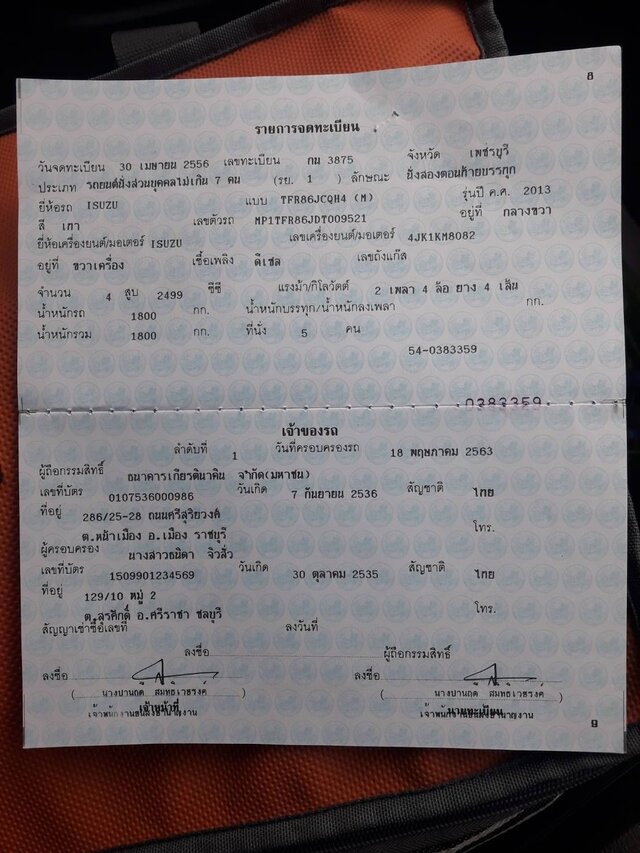 8
รายการจดทะเบียน
วันจดทะเบียน 30 เมษายน 2556 เลขทะเบียน กน 3875 จังหวัด เพชรบุรี
ประเภท รถยนต์นั่งส่วนบุคคลไม่เกิน 7 คน (รย. 1 ) ลักษณะ นั่งสองตอนท้ายบรรทุก
ยี่ห้อรถ ISUZU แบบ TFR86JCQH4 (M) รุ่นปี ค.ศ. 2013
สี เทา เลขตัวรถ MP1TFR86JDT009521 อยู่ที่ กลางขวา
ยี่ห้อเครื่องยนต์/มอเตอร์ ISUZU เลขเครื่องยนต์/มอเตอร์ 4JK1KM8082
อยู่ที่ ขวาเครื่อง เชื้อเพลิง ดีเซล เลขถังแก๊ส
จำนวน 4 สูบ 2499 ซีซี แรงม้า/กิโลวัตต์ 2 เพลา 4 ล้อ ยาง 4 เส้น
น้ำหนักรถ 1800 กก. น้ำหนักบรรทุก/น้ำหนักลงเพลา กก.
น้ำหนักรวม 1800 กก. ที่นั่ง 5 คน
54-0383359
0383359
เจ้าของรถ
ลำดับที่ 1 วันที่ครอบครองรถ 18 พฤษภาคม 2563
ผู้ถือกรรมสิทธิ์ ธนาคารเกียรตินาคิน จำกัด(มหาชน)
เลขที่บัตร 0107536000986 วันเกิด 7 กันยายน 2536 สัญชาติ ไทย
ที่อยู่ 286/25-28 ถนนศรีสุริยวงศ์ โทร.
ต.หน้าเมือง อ.เมือง ราชบุรี
ผู้ครอบครอง นางสาวธนิดา จิวสิ่ว
เลขที่บัตร 1509901234569 วันเกิด 30 ตุลาคม 2535 สัญชาติ ไทย
ที่อยู่ 129/10 หมู่ 2 โทร.
ต.สุรศักดิ์ อ.ศรีราชา ชลบุรี
สัญญาเช่าซื้อเลขที่ ลงวันที่
ลงชื่อ ผู้ถือกรรมสิทธิ์
ลงชื่อ ลงชื่อ
( นางปานฤดี ) ( นางปานฤดี )
เจ้าหน้าที่ นายทะเบียน
9